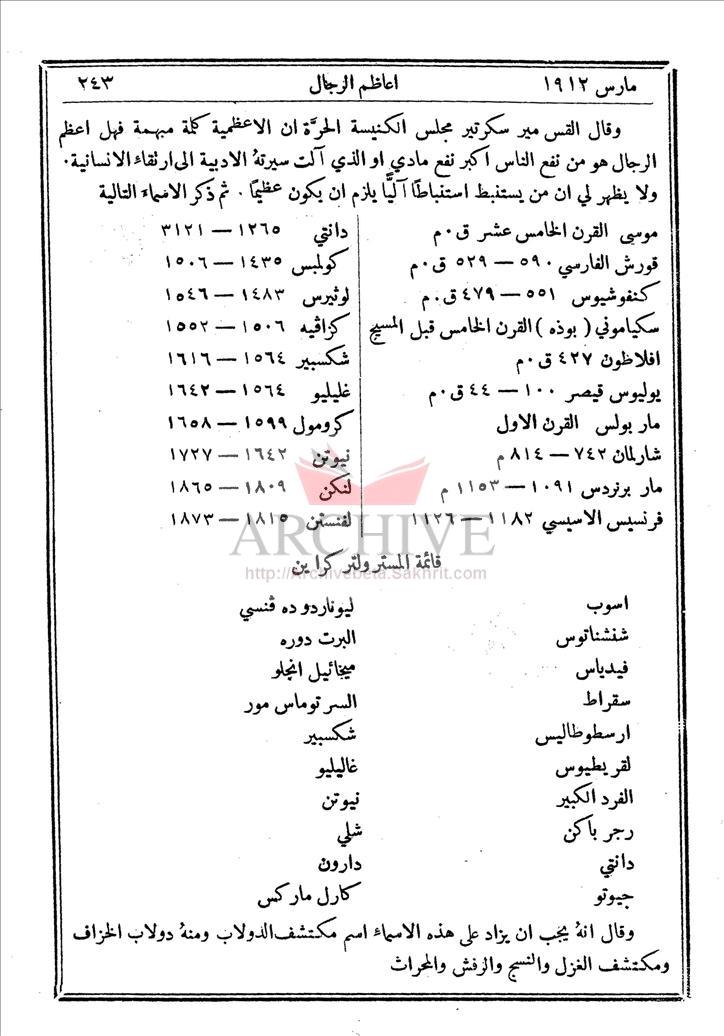 مارس ١٩١٢ اعاظم الرجال ٢٤٣
وقال القس مير سكرتير مجلس الكنيسة الحرَّة ان الاعظمية كلمة مبهمة فهل اعظم
الرجال هو من نفع الناس اكبر نفع مادي او الذي آلت سيرتهُ الادبية الى ارتقاء الانسانية.
ولا يظهر لي ان من يستنبط استنباطًا آليًّا يلزم ان يكون عظيمًا . ثم ذكر الاسماء التالية
موسى القرن الخامس عشر ق٠م
قورش الفارسي ٥٩٠ — ٥٢٩ ق٠م
كنفوشيوس ٥٥١ — ٤٧٩ ق٠م
سكياموني ( بوذه ) القرن الخامس قبل المسيح
افلاطون ٤٢٧ ق٠م
يوليوس قيصر ١٠٠ — ٤٤ ق٠م
مار بولس القرن الاول
شارلمان ٧٤٢ — ٨١٤ م
مار برنردس ١٠٩١ — ١١٥٣ م
فرنسيس الاسيسي ١١٨٢ — ١١٢٦
دانتي ١٢٦٥ — ٣١٢١
كولمبس ١٤٣٥ — ١٥٠٦
لوثيرس ١٤٨٣ — ١٥٤٦
كزافيه ١٥٠٦ — ١٥٥٢
شكسبير ١٥٦٤ — ١٦١٦
غليليو ١٥٦٤ — ١٦٤٢
كرومول ١٥٩٩ — ١٦٥٨
نيوتن ١٦٤٢ — ١٧٢٧
لنكن ١٨٠٩ — ١٨٦٥
لفنستن ١٨١٥ — ١٨٧٣
ARCHIVE
http://Archivebeta.Sakhrit.com
قائمة المستر ولتر كراين
اسوب
شنشناتوس
فيدياس
سقراط
ارسطوطاليس
لقريطيوس
الفرد الكبير
رجر باكن
دانتي
جيوتو
ليوناردو ده ڤنسي
البرت دوره
ميخائيل انجلو
السر توماس مور
شكسبير
غاليليو
نيوتن
شلي
دارون
كارل ماركس
وقال انهُ يجب ان يزاد على هذه الاسماء اسم مكتشف الدولاب ومنهُ دولاب الخزاف
ومكتشف الغزل والنسج والرفش والمحراث